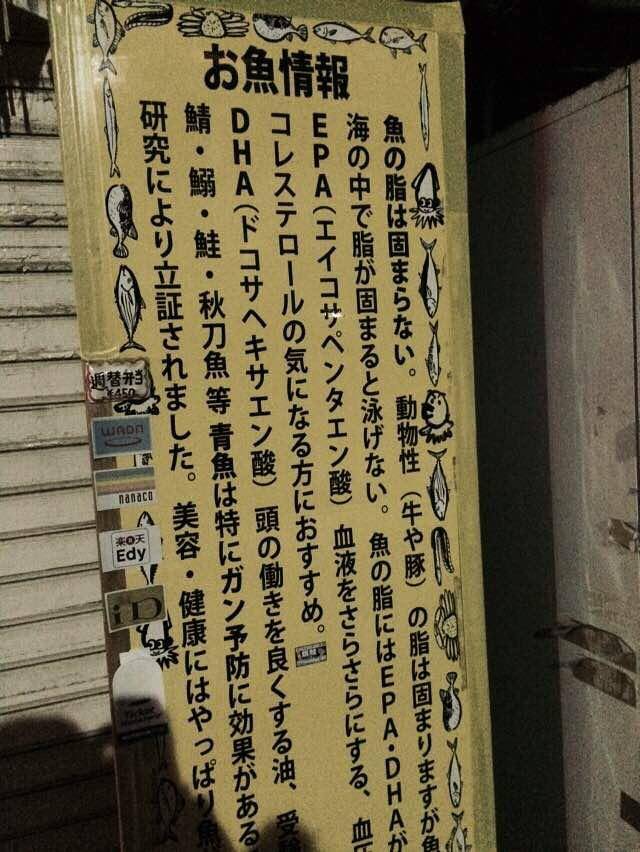 お魚情報
魚の脂は固まらない。動物性（牛や豚）の脂は固まりますが魚
海の中で脂が固まると泳げない。魚の脂にはEPA・DHAが
EPA（エイコサペンタエン酸）血液をさらさらにする、血
コレステロールの気になる方におすすめ。
DHA（ドコサヘキサエン酸）頭の働きを良くする油、受
鯖・鰯・鮭・秋刀魚等青魚は特にガン予防に効果がある
研究により立証されました。美容・健康にはやっぱり魚
週替弁当
¥450
WAON
nanaco
楽天
Edy
iD